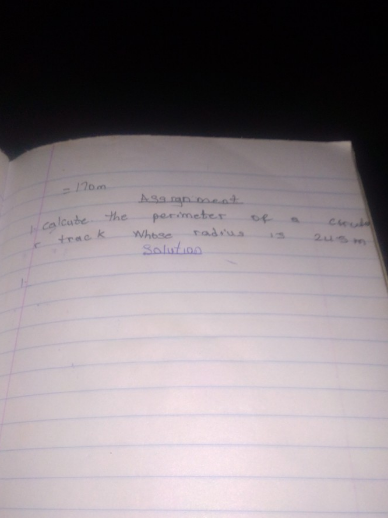 = 170m
Assignment
1. calcute the perimeter of a circula
r track whose radius is 245m
Solution
1.